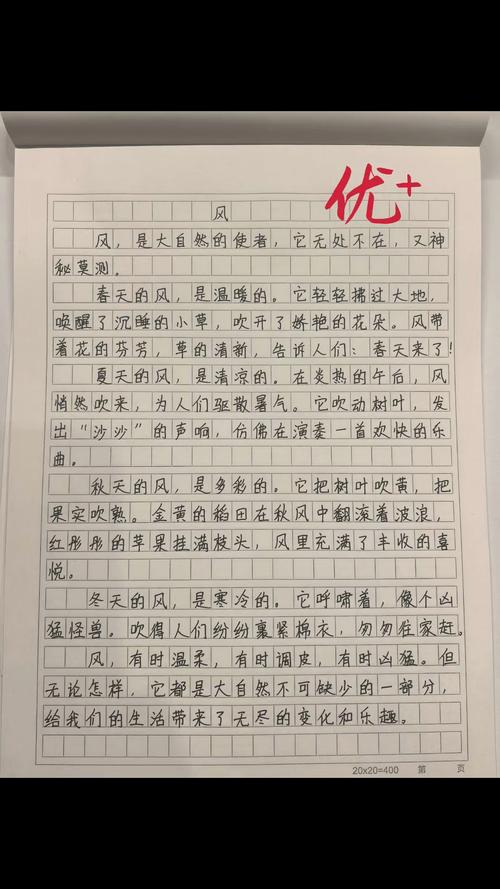 优+
风
风，是大自然的使者，它无处不在，又神
秘莫测。
春天的风，是温暖的。它轻轻拂过大地，
唤醒了沉睡的小草，吹开了娇艳的花朵。风带
着花的芬芳，草的清新，告诉人们：春天来了！
夏天的风，是清凉的。在炎热的午后，风
悄然吹来，为人们驱散暑气。它吹动树叶，发
出“沙沙”的声响，仿佛在演奏一首欢快的乐
曲。
秋天的风，是多彩的。它把树叶吹黄，把
果实吹熟。金黄的稻田在秋风中翻滚着波浪，
红彤彤的苹果挂满枝头，风里充满了丰收的喜
悦。
冬天的风，是寒冷的。它呼啸着，像个凶
猛怪兽。吹得人们纷纷裹紧棉衣，匆匆往家赶。
风，有时温柔，有时调皮，有时凶猛。但
无论怎样，它都是大自然不可缺少的一部分，
给我们的生活带来了无尽的变化和乐趣。
20x20=400 第 页